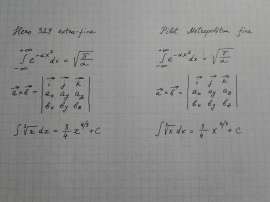 Hero 329 extra-fine
∫_{-∞}^{+∞} e^{-αx²} dx = √(π/α)
a⃗ × b⃗ = | i⃗ j⃗ k⃗ |
| a_x a_y a_z |
| b_x b_y b_z |
∫ ∛x dx = 3/4 x^{4/3} + C
Pilot Metropolitan fine
∫_{-∞}^{+∞} e^{-αx²} dx = √(π/α)
a⃗ × b⃗ = | i⃗ j⃗ k⃗ |
| a_x a_y a_z |
| b_x b_y b_z |
∫ ∛x dx = 3/4 x^{4/3} + C